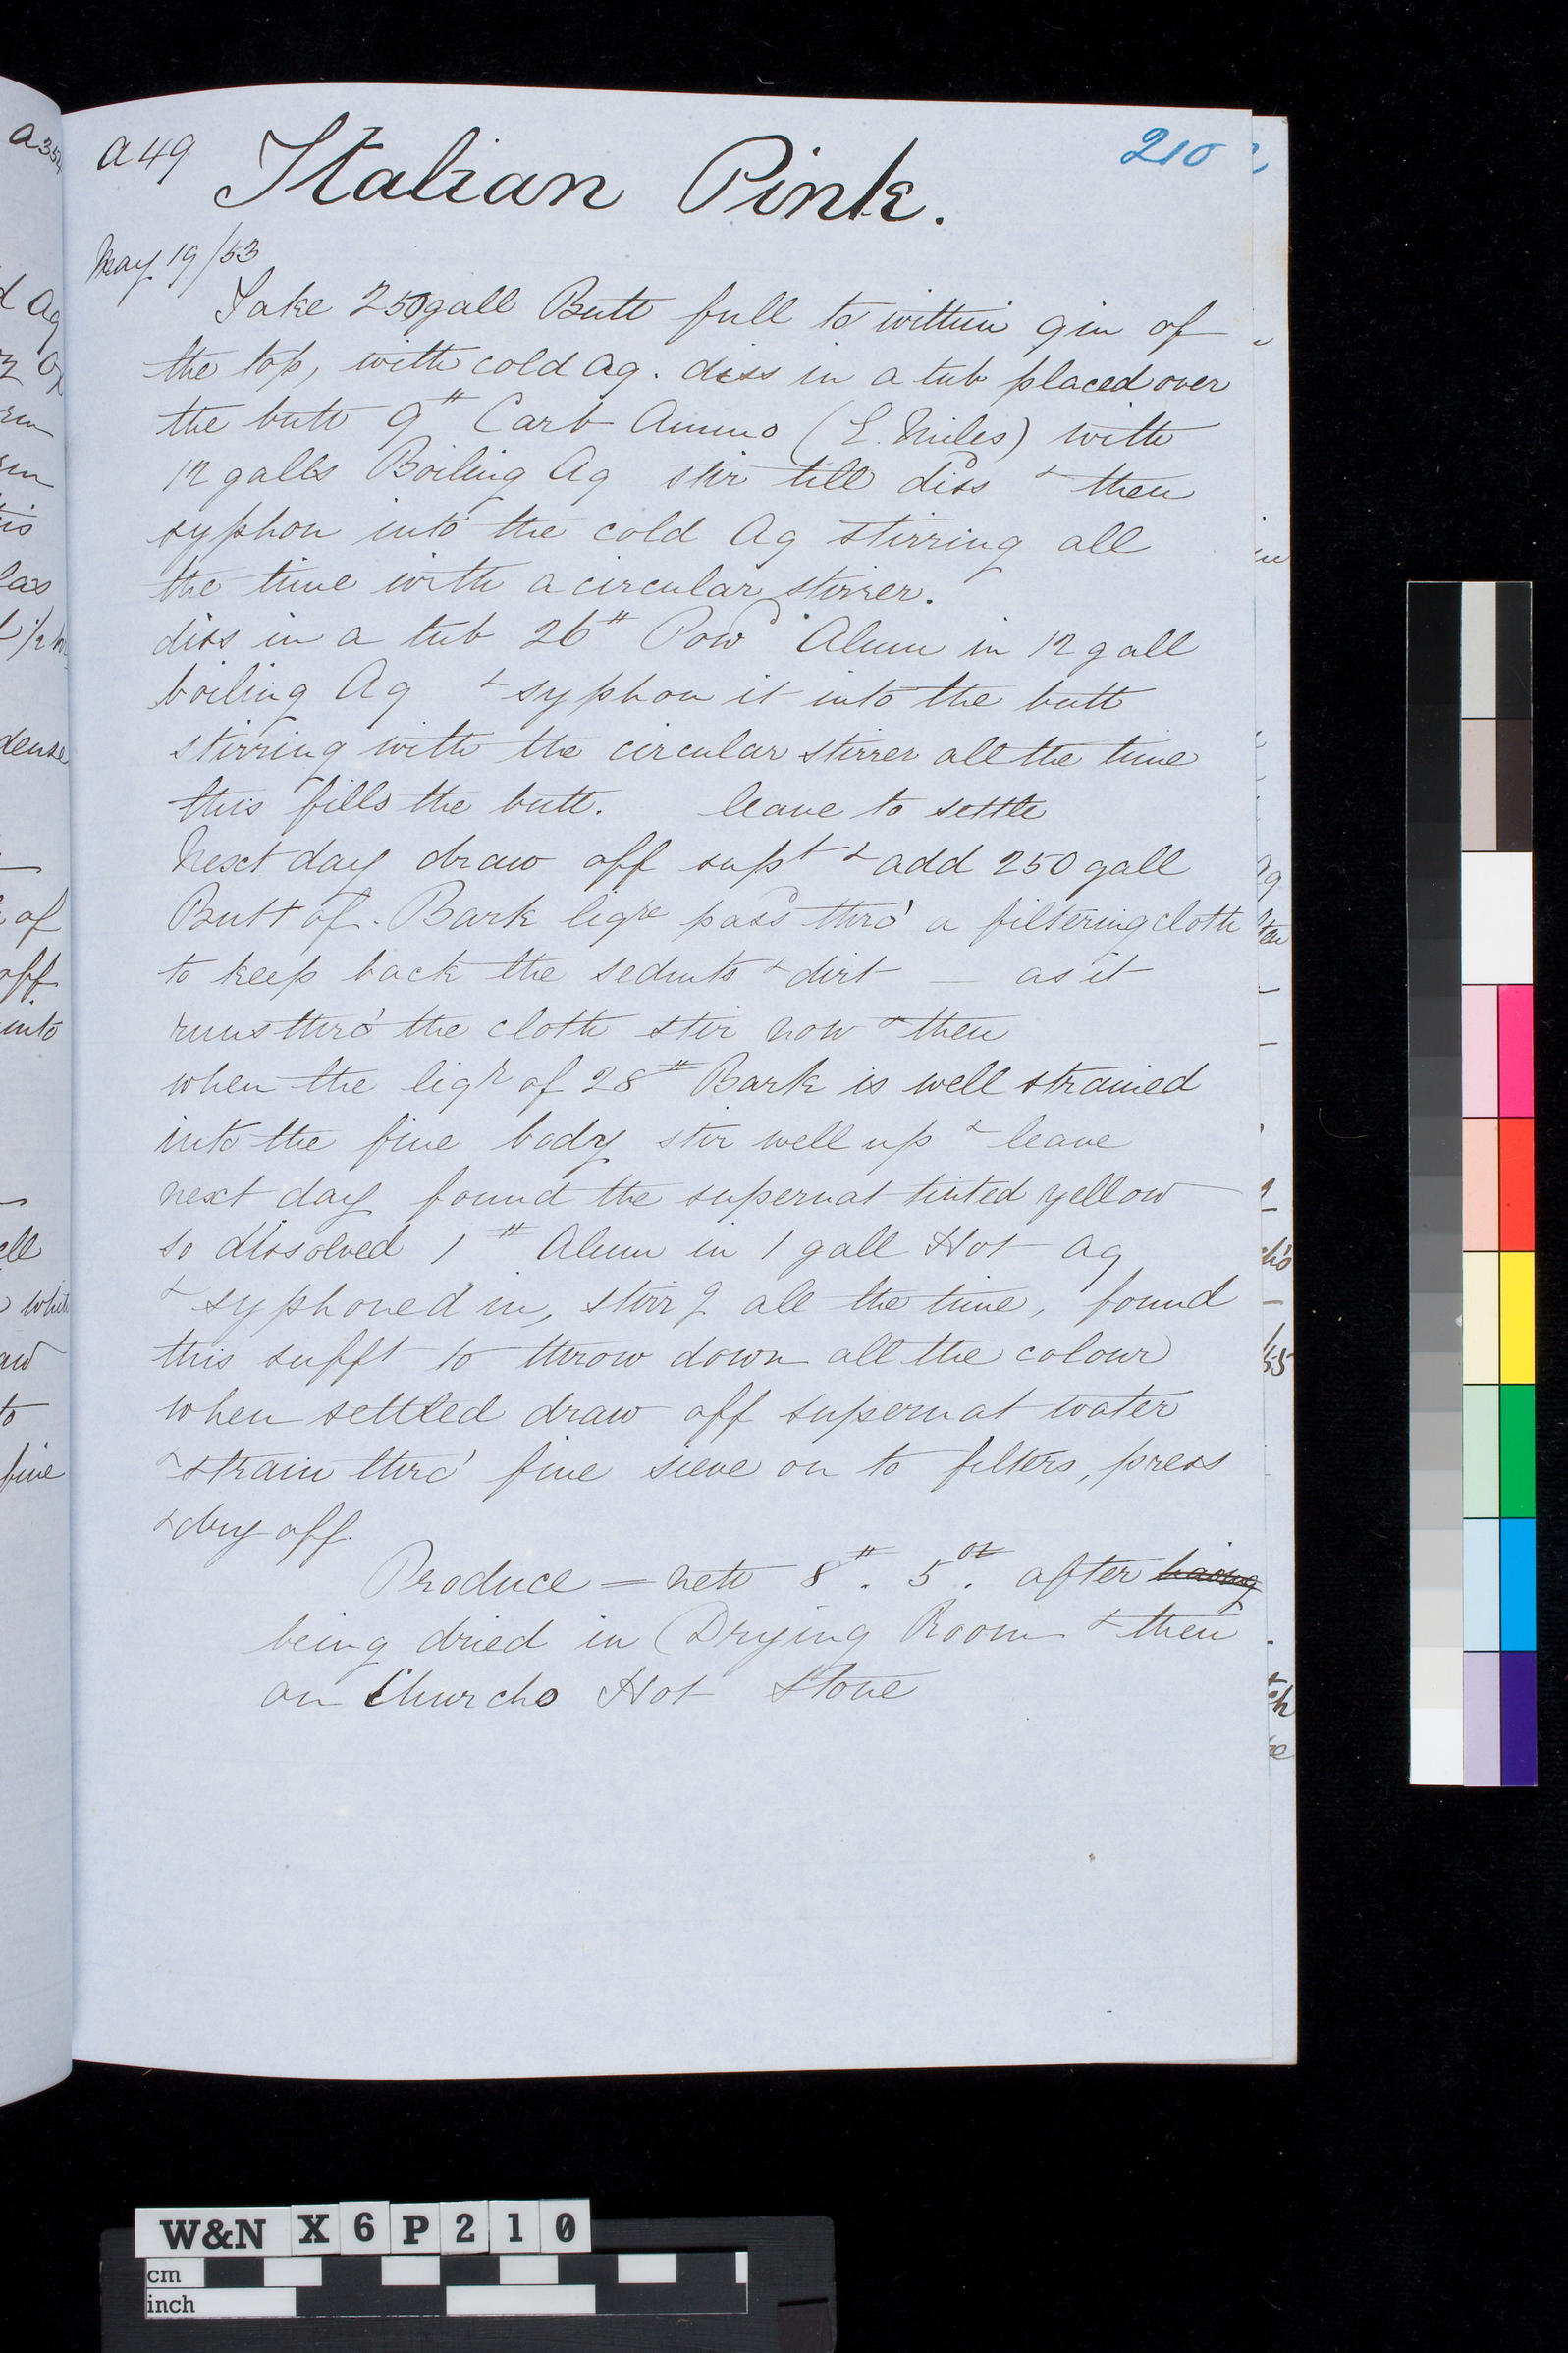 a 49 Italian Pink. 210
May 19/53
Take 250 gall Butt full to within 9 in of
the top, with cold aq. diss in a tub placed over
the butt 9 # Carb Ammo (E. Miles) with
12 galls Boiling Aq stir till diss & then
syphon into the cold Aq stirring all
the time with a circular stirrer.
diss in a tub 26 # Powd Alum in 12 gall
boiling Aq & syphon it into the butt
stirring with the circular stirrer all the time
this fills the butt. leave to settle
Next day draw off supt & add 250 gall
Butt of. Bark liqre pass thro' a filtering cloth
to keep back the sedmts & dirt — as it
runs thro' the cloth stir now & then
when the liqr of 28 # Bark is well strained
into the fine body stir well up & leave
next day found the supernat tinted yellow
so dissolved 1 # Alum in 1 gall Hot aq
& syphoned in, stirrg all the time, found
this sufft to throw down all the colour
when settled draw off supernat water
& strain thro' fine sieve on to filters, press
& dry off.
Produce = nett 8 #. 5 oz. after having
being dried in Drying Room & then
on Churchs Hot Stove
W&N X6P210
cm
inch